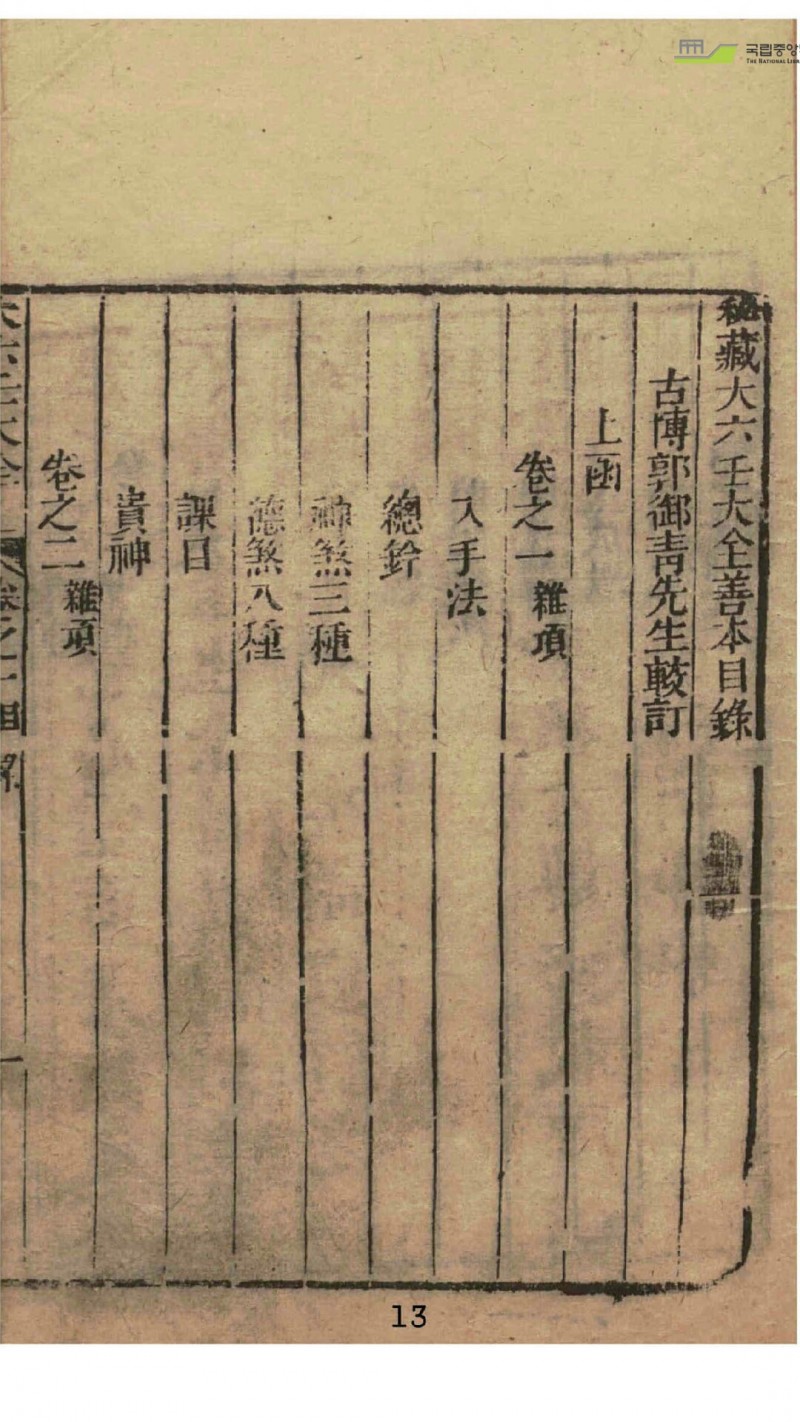 국립중앙
THE NATIONAL LIBR
秘藏大六壬大全善本目錄
古博郭御靑先生較訂
上函
卷之一 雜項
入手法
總鈐
神煞三種
德煞八種
課目
貴神
卷之二 雜項
大六壬大全
卷之一目錄
一
13